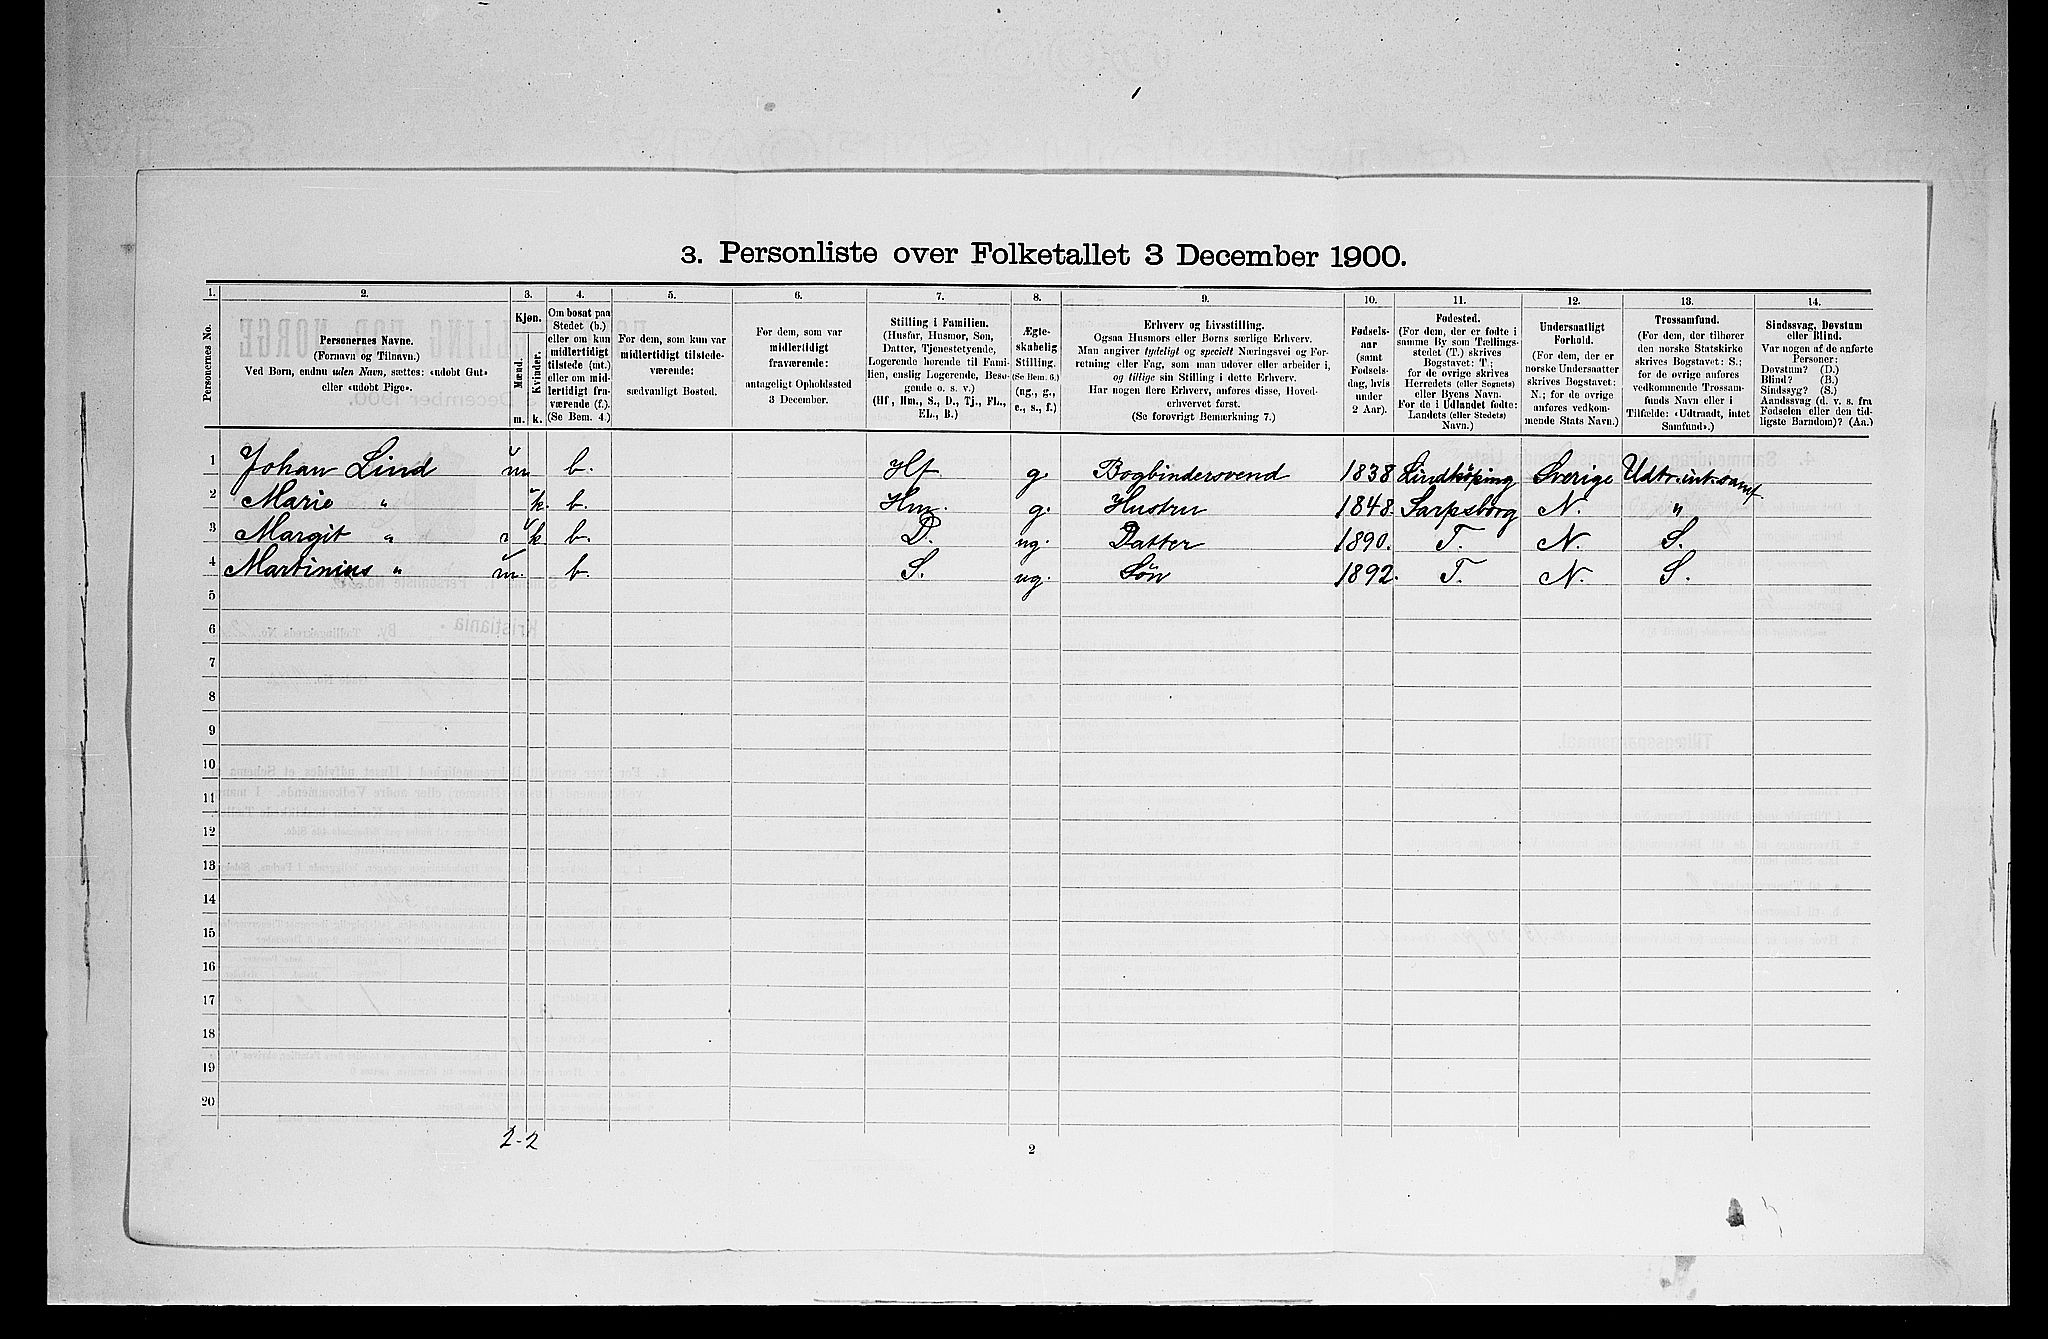 3. Personliste over Folketallet 3 December 1900.
1. 2. 3. 4. 5. 6. 7. 8. 9. 10. 11. 12. 13. 14.
Personernes No.
Personernes Navne.
(Fornavn og Tilnavn.)
Ved Børn, endnu uden Navn, sættes: «udøbt Gut»
eller «udøbt Pige».
Kjøn.
Mænd.
Kvinder.
m. k.
Om bosat paa
Stedet (b.)
eller om kun
midlertidigt
tilstede (mt.)
eller om mid-
lertidigt fra-
værende (f.).
(Se Bem. 4.)
For dem, som kun var
midlertidigt tilstede-
værende:
sædvanligt Bosted.
For dem, som var
midlertidigt
fraværende:
antageligt Opholdssted
3 December.
Stilling i Familien.
(Husfar, Husmor, Søn,
Datter, Tjenestetyende,
Logerende hørende til Fami-
lien, enslig Logerende, Besø-
gende o. s. v.)
(Hf, Hm., S., D., Tj., FL.,
EL., B.)
Ægte-
skabelig
Stilling.
(Se Bem. 6.)
(ug., g.,
e., s., f.)
Erhverv og Livsstilling.
Ogsaa Husmors eller Børns særlige Erhverv.
Man angiver tydeligt og specielt Næringsvei og For-
retning eller Fag, som man udøver eller arbeider i,
og tillige sin Stilling i dette Erhverv.
Har nogen flere Erhverv, anføres disse, Hoved-
erhvervet først.
(Se forøvrigt Bemærkning 7.)
Fødsels-
aar
(samt
Fødsels-
dag, hvis
under
2 Aar).
Fødested.
(For dem, der er fødte i
samme By som Tællings-
stedet (T.) skrives
Bogstavet: T.;
for de øvrige skrives
Herredets (eller Sognets)
eller Byens Navn.
For de i Udlandet fødte:
Landets (eller Stedets)
Navn.)
Undersaatligt
Forhold.
(For dem, der er
norske Undersaatter
skrives Bogstavet:
N.; for de øvrige
anføres vedkom-
mende Stats Navn.)
Trossamfund.
(For dem, der tilhører
den norske Statskirke
skrives Bogstavet: S.;
for de øvrige anføres
vedkommende Trossam-
funds Navn eller i
Tilfælde: «Udtraadt, intet
Samfund».)
Sindssvag, Døvstum
eller Blind.
Var nogen af de anførte
Personer:
Døvstum? (D.)
Blind? (B.)
Sindssyg? (S.)
Aandssvag (d. v. s. fra
Fødselen eller den tid-
ligste Barndom)? (Aa.)
1 Johan Lind m b. Hf g. Bogbindersvend 1838 Lindköping Sverige Udtr. int. samf.
2 Marie " k. b. Hm. g. Hustru 1848. Sarpsborg N. "
3 Margit " k b. D. ug. Datter 1890. T. N. S.
4 Martinius " m. b. S. ug. Søn 1892. T. N. S.
5
6
7
8
9
10
11
12
13
14
15
16
17
18
19
20
2-2
2